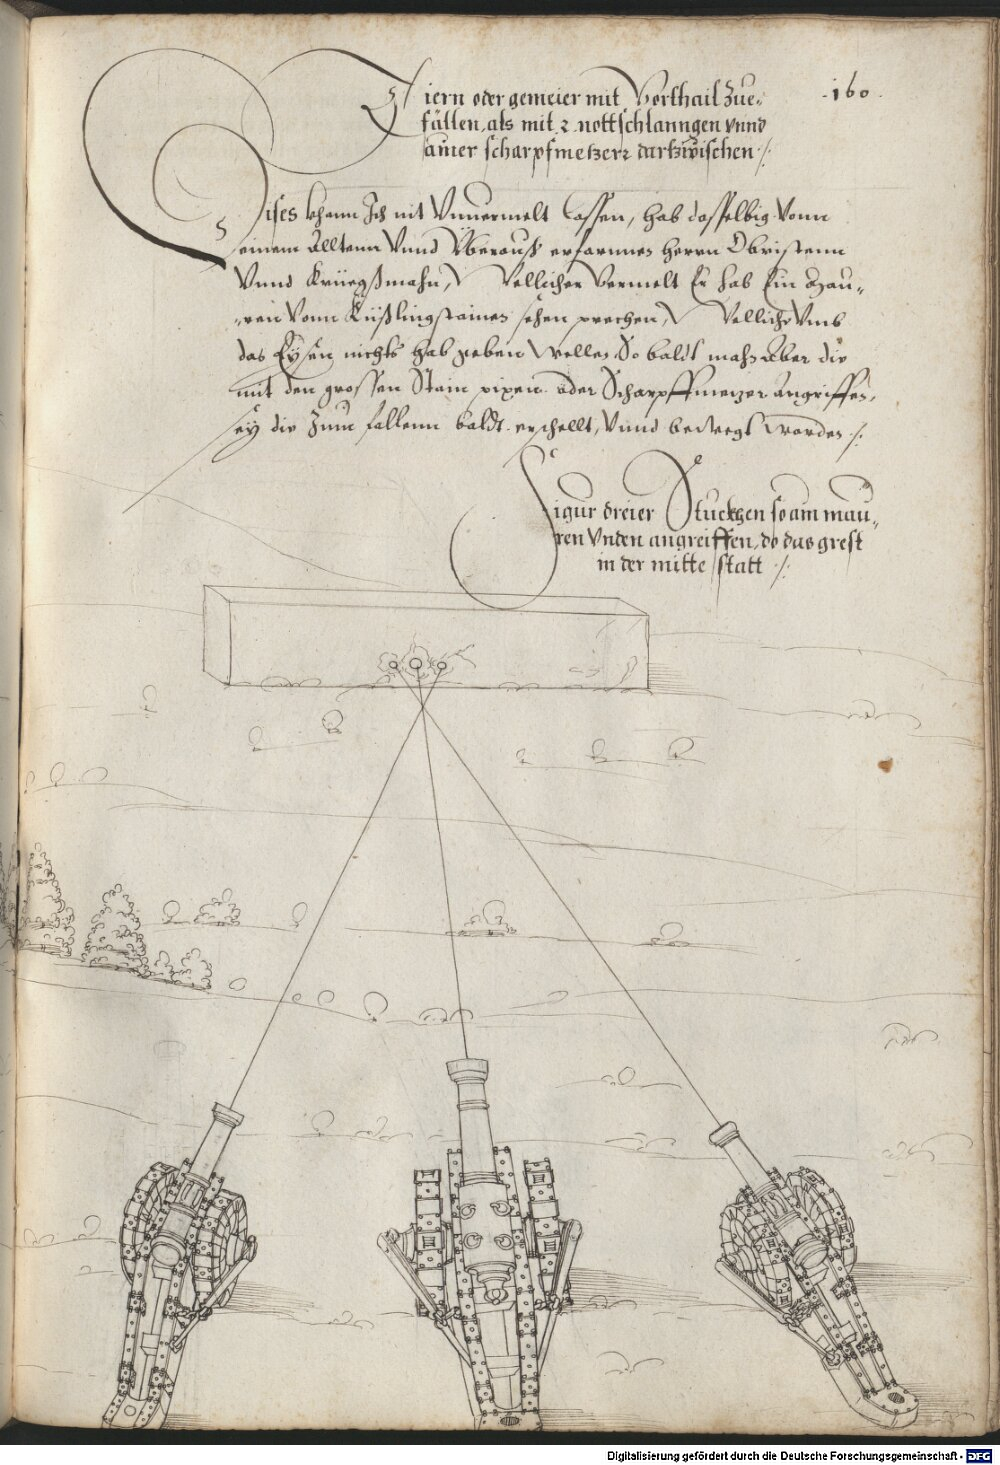 Ein oder gemeier mit Vorthail zue-
fällen, als mit 2 nottschlanngen vnnd
ainer scharpfmetzen dartzwischen ./.
.160.
Dises khann Ich nit Vnuermelt Lassen, hab dasselbig Vonn
einem Alltenn Vnnd Vberauß erfarnnen herrn Obristenn
Vnnd Kriegßmahn, Wellicher Vermelt Er hab Ein Mau-
ren Vonn Kißlingstainen sehen prechen, Wellichs Vmb
das Eysen nichts hab geben wellen, So baldt mahn Aber die
mit den grossen Stain pixen oder Scharpffmetzen Angriffen,
sey die Zum fallenn baldt erschellt, Vnnd bewegt worden ./.
Figur dreier Stuckhen so am mau-
ren Vnden angreiffen, do das grest
in der mitte statt ./.
Digitalisierung gefördert durch die Deutsche Forschungsgemeinschaft - DFG